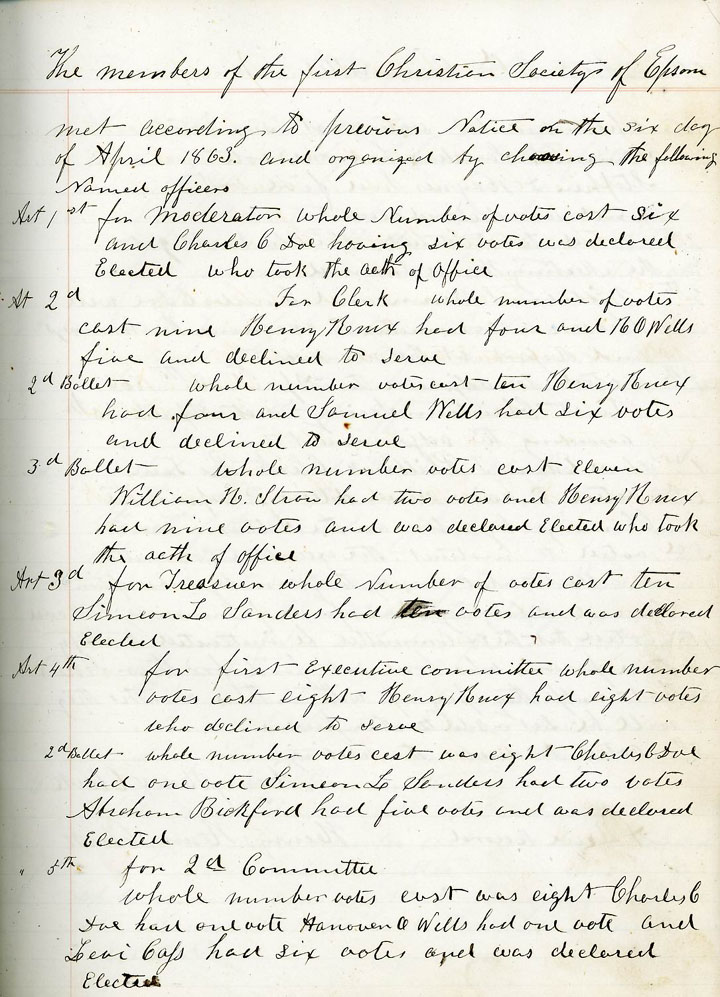 The members of the first Christian Societys of Epsom
met according to previous Notice on the six day
of April 1863. and organized by choosing the following
Named officers
Art 1st for Moderator whole Number of votes cost six
and Charles C Doe having six votes was declared
Elected who took the acth of Office
At 2d For Clerk whole number of votes
cast nine Henry Knox had four and H O Wells
five and declined to serve
2d Ballet whole number votes cast ten Henry Knox
had four and Samuel Wells had six votes
and declined to serve
3d Ballet whole number votes cast Eleven
William H. Straw had two votes and Henry Knox
had nine votes and was declared Elected who took
the acth of office
Art 3d for Treasuer whole Number of votes cast ten
Simeon L Sanders had ten votes and was declared
Elected
Art 4th for first Executive committee whole number
votes cast eight Henry Knox had eight votes
who declined to serve
2d Ballet whole number votes cest was eight Charles C Doe
had one vote Simeon L Sanders had two votes
Abraham Bickford had five votes and was declared
Elected
" 5th for 2d Committee
whole number votes cast was eight Charles C
Doe had one vote Hanover O Wells had one vote and
Levi Cass had six votes and was declared
Elected